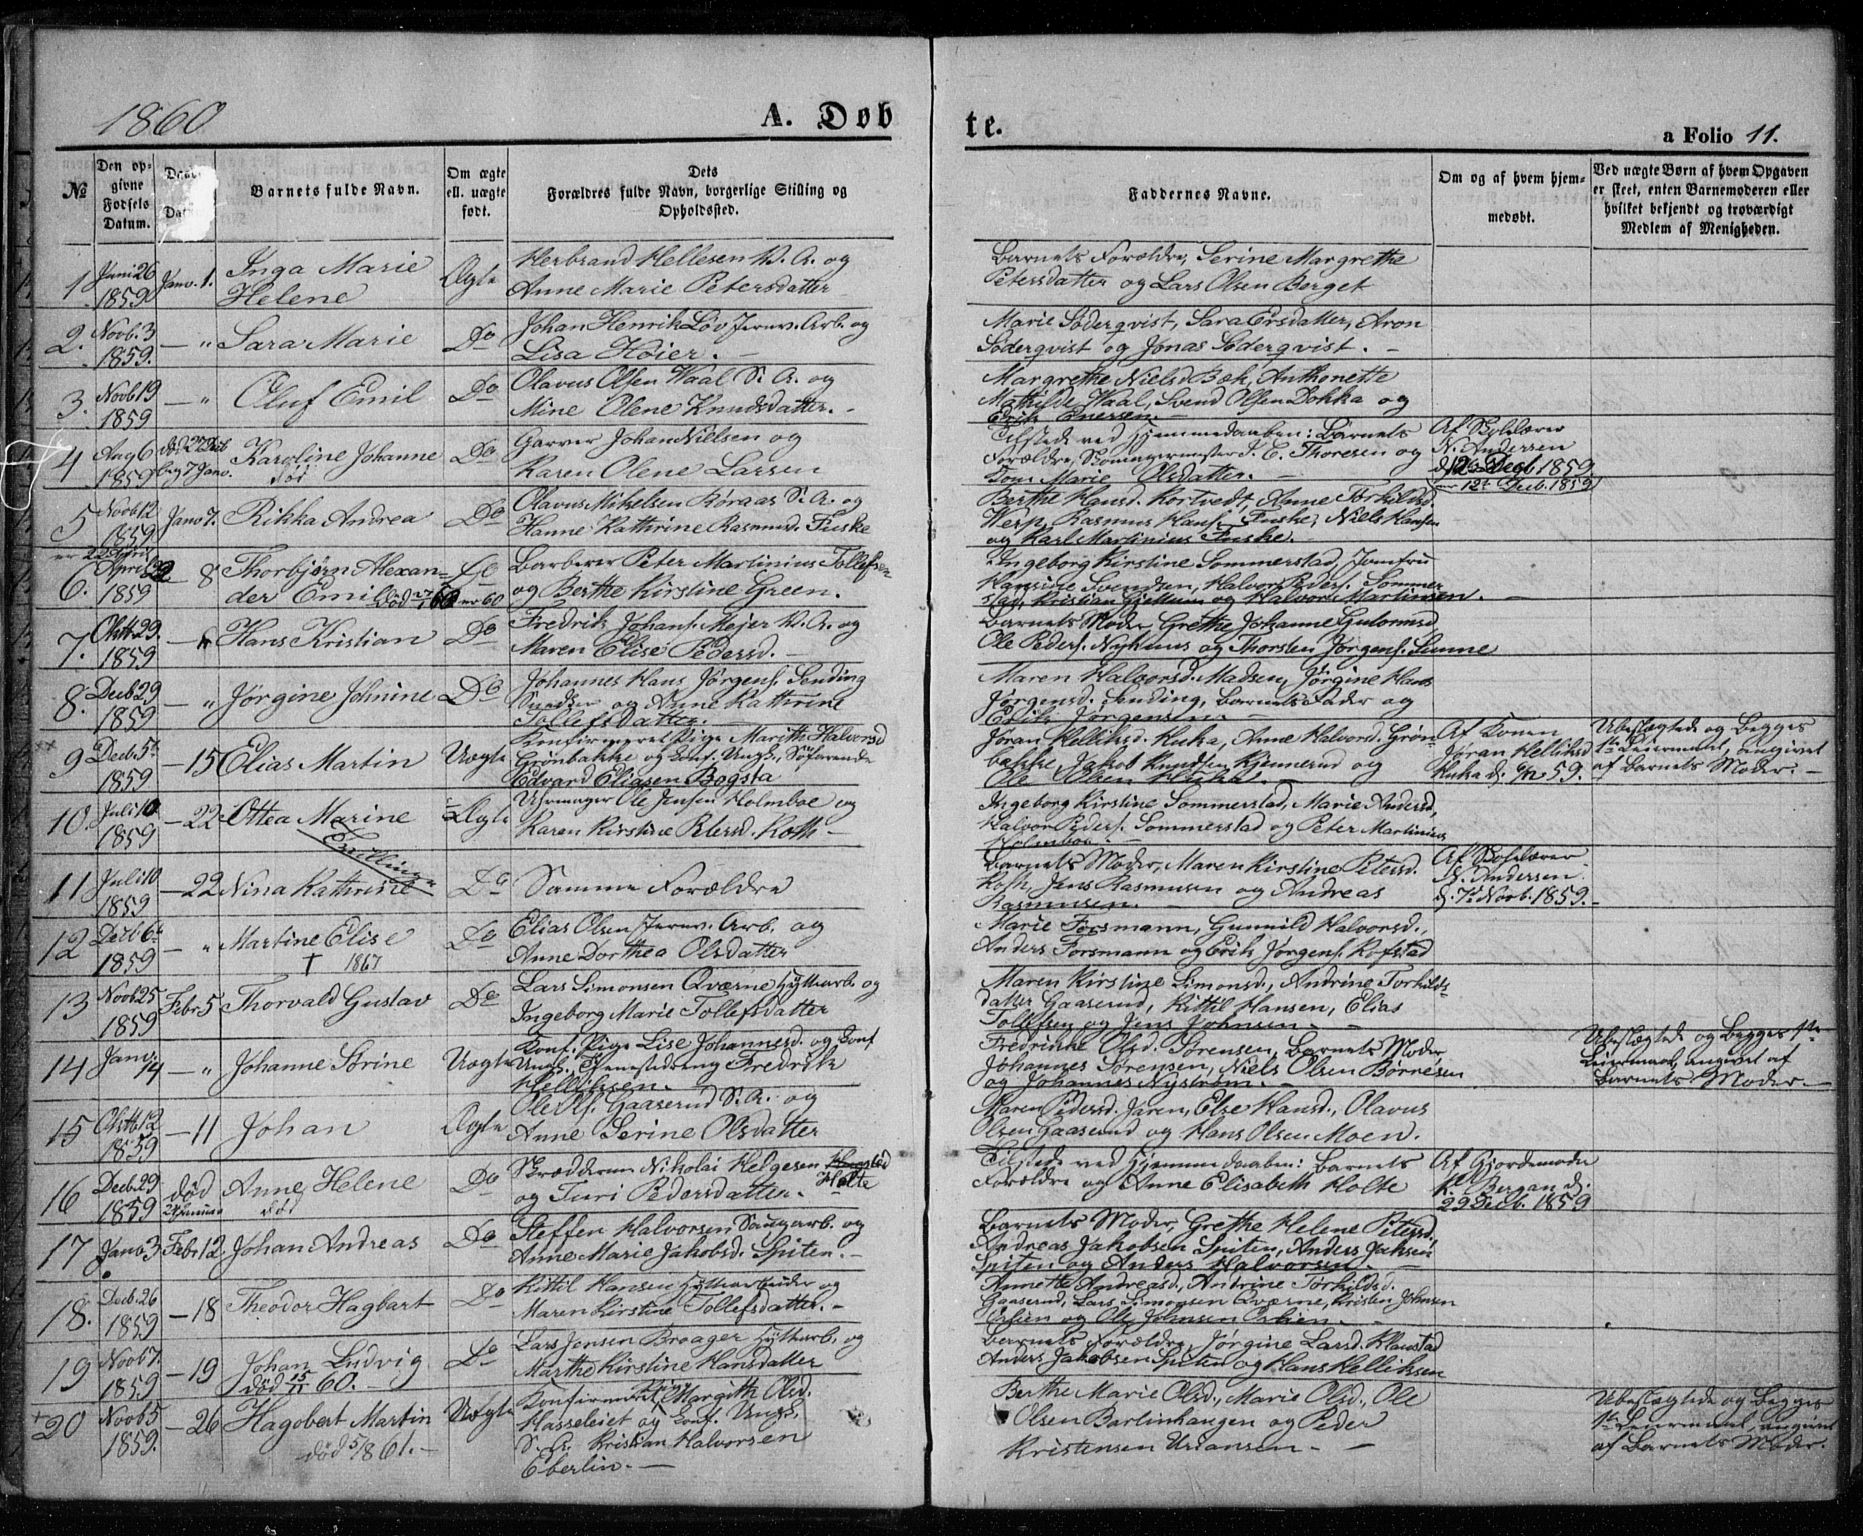 1860
A. Døb
te.
a Folio 11.
№
Den op-
givne
Fødsels
Datum.
Barnets fulde Navn.
Om ægte
ell. uægte
født.
Dets
Forældres fulde Navn, borgerlige Stilling og
Opholdssted.
Faddernes Navne.
Om og af hvem hjem-
medøbt.
Ved uægte Børn af hvem Opgaven
er skeet, enten Barnemoderen eller
hvilket bekjendt og troværdigt
Medlem af Menigheden.
1. Juni 26 1859 Janv. 1. Inga Marie
Helene
Ægte
Herbrand Hellesen B. A. og
Anne Marie Petersdatter
Barnets Forældre, Serine Margrethe
Petersdatter og Lars Olsen Berget
2. Novb. 3 1859. — " Sara Marie
Do
Johan Henrik Löv Jernv. Arb. og
Lisa Höier. —
Marie Söderqvist, Sara Ersdatter, Aron
Söderqvist og Jonas Söderqvist. —
3. Novb 19 1859 — " Oluf Emil
Do
Olavus Olsen Waal S. A. og
Mine Olene Knudsdatter. —
Margrethe Nielsd Bæk, Anthonette
Mathilde Waal, Svend Olsen Dokka og
4 Aug 6 1859 Karoline Johanne
død
Do
Garver Johan Nielsen og
Karen Olene Larsen
Tilstede ved Hjemmedaaben: Barnets
Forældre, Skomagermester J. C. Thoresen og
Marie Olsdatter. —
Af Skolelærer
N. Andersen
12 Decb 1859
er 12te Decb. 1859
5 Novb 12 1859 Janv 7. Rikka Andrea
Do
Olavus Mikelsen Røraas S. A. og
Hanne Kathrine Rasmusd. Fuske
Berthe Hansd. Kortvedt, Anne Torkildsd
Werp, Rasmus Hans. Fuske, Niels Hansen
og Karl Martinius Fuske.
6. April 22 1859 — 8 Thorbjørn Alexan-
der Emil
Barberer Peter Martinius Tollefsen
og Berthe Kirstine Green.
Ingeborg Kirstine Sommerstad, Jomfru
Hansine Svendsen, Halvor Peders. Sommer
stad, Kristian og Halvor Martinsen. —
7. Oktb 29. 1859 Hans Kristian
Do
Fredrik Johans. Mejer B. A. og
Maren Elise Pedersd. —
Barnets Moder, Grethe Johanne Gulormsd
Ole Peders. Nyhuus og Thorsten Jørgens. Lunne
8. Decb 29 1859 — " Jørgine Johnine
Do
Johannes Hans Jørgens. Sending
Snedker og Anne Kathrine
Tollefsdatter. —
Maren Halvorsd. Madsen, Jørgine Hans
Jørgensd. Sending, Barnets Fader og
Erik Jørgensen. —
9 Decb. 5te 1859 — 15 Elias Martin
Uægte
Konfirmeret Pige Marith Halvorsd
Grönbakke og Konf. Ungk., Søfarende
Edvard Eliasen Bogsta
Jøran Helliksd. Huka, Anne Halvorsd. Grøn-
bakke, Jakob Knudsen Kjennerud og
Ole Olsen Huka. —
Af Konen
Jøran Helliksd
Huka d. 59.
Ubeslægtede og Begges
1ste Leiermaal, angivet
af Barnets Moder. —
10. Juli 10 1859 — 22 Ottea Marine
Ægte
Uhrmager Ole Jensen Holmboe og
Karen Kirstine Petersd. Koth —
Ingeborg Kirstine Sommerstad, Marie Andersd,
Halvor Peders. Sommerstad og Peter Martinius
Holmboe. —
Tvillinge
11 Juli 10 1859 — 22 Nina Kathrine
Do
Samme Forældre
Barnets Moder, Maren Kirstine Petersd.
Koth, Jens Rasmusen og Andreas
Rasmusen. —
Af Skolelærer
N. Andersen
d. 7de Novb. 1859. —
12 Decb 6te 1859 — " Martine Elise
† 1867
Do
Elias Olsen Jernv. Arb. og
Anne Dorthea Olsdatter
Marie Forsmann, Gunnild Halvorsd.,
Anders Forsmann og Erik Jørgens. Rofstad
13 Novb 25 1859 Febr 5 Thorvald Gustav
Do
Lars Simonsen Qværne Hyttearb. og
Ingeborg Marie Tollefsdatter
Maren Kirstine Simonsd., Andrine Torkilds
datter Gaaserud, Kittil Hansen, Elias
Tollefsen og Jens Johnsen. —
14 Janv. 14 — " Johanne Sörine
Uægte
Konf. Pige Lise Johannesd. og Konf
Ungk. Tjenestedreng Fredrik
Helliksen. —
Fredrikke Olsd. Sörensen, Barnets Moder,
Johannes Sörensen, Niels Olsen Börnesen
og Johannes Nyström. —
Ubeslægtede og Begges 1ste
Leiermaal, angivet af
Barnets Moder. —
15 Oktb. 12 1859 — 11 Johan
Ægte
Ole Ols. Gaaserud S. A. og
Anne Serine Olsdatter
Maren Pedersd. Jaren, Else Hansd., Olavus
Olsen Gaaserud og Hans Olsen Moen.
16 Decb 29 1859 død Anne Helene
død
Do
Skrædder Nikolai Helgesen
Holte
og Turi Pedersdatter. —
Tilstede ved Hjemmedaaben: Barnets
Forældre og Anne Elisabeth Holte
Af Gjordemoder
K. Bergan d.
29 Decb. 1859
17 Janv. 3 Febr. 12 Johan Andreas
Do
Steffen Halvorsen Saugarb. og
Anne Marie Jakobsd. Spiten. —
Barnets Moder, Grethe Helene Petersd,
Andreas Jakobsen Spiten, Anders Jakobsen
Spiten og Anders Halvorsen. —
18. Decb. 26 1859 — 18 Theodor Hagbart
Do
Kittil Hansen Hyttearbeider og
Maren Kirstine Tollefsdatter. —
Annette Andreasd., Andrine Torkildsd.
Gaaserud, Lars Simonsen Qværne, Kristen Johnsen
og Ole Johnsen
19 Novb 7. 1859 — 19 Johan Ludvig
død 60. —
Do
Lars Jensen Broager Hyttearb. og
Marthe Kirstine Hansdatter
Barnets Forældre, Jørgine Larsd. Klunstad
Anders Jakobsen Spiten og Hans Helliksen
20 Novb 5 1859. — 26 Hagbert Martin
død 5/8 61. —
Uægte
Konfirmeret Pige Margith Olsd.
Hasseleiet og Konf. Ungk.
S. A. Kristian Halvorsen
Eberlin. —
Berthe Marie Olsd., Marie Olsd., Ole
Olsen Barlinhaugen og Peder
Kristensen Uransen. —
Ubeslægtede og Begges
1ste Leiermaal, angivet
af Barnets Moder.